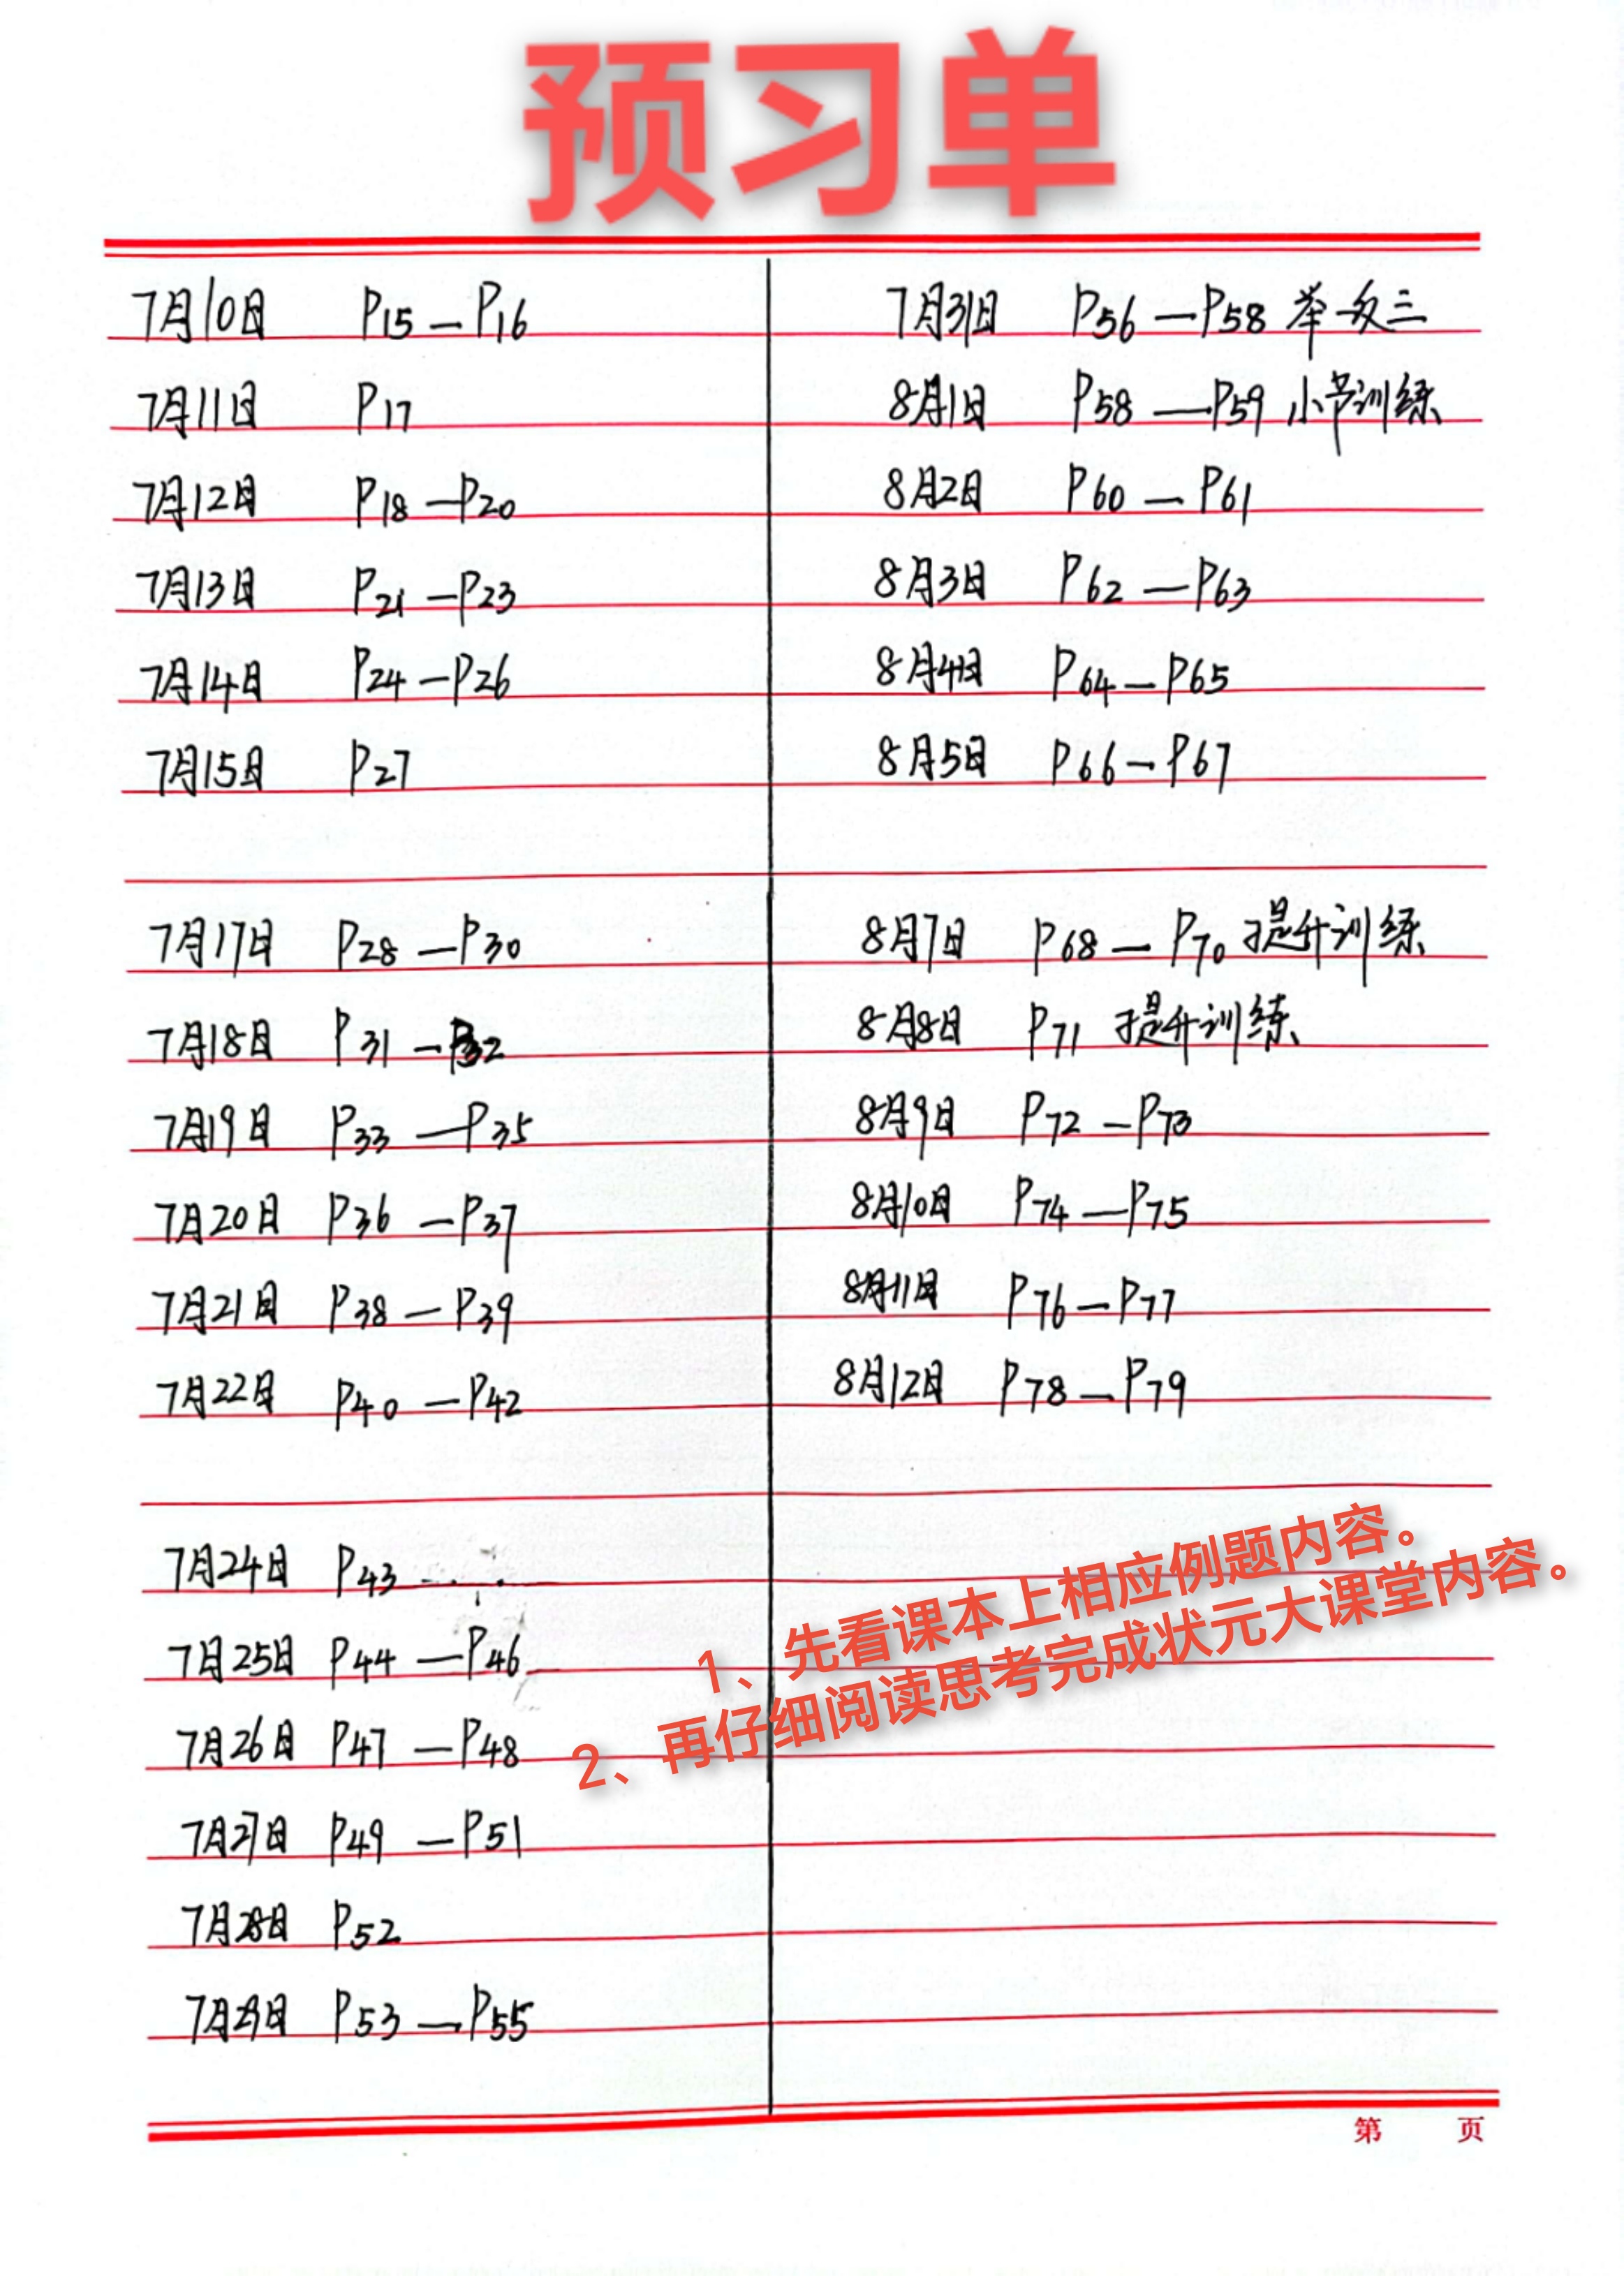 预习单
7月10日 P15—P16
7月11日 P17
7月12日 P18—P20
7月13日 P21—P23
7月14日 P24—P26
7月15日 P27
7月17日 P28—P30
7月18日 P31—P32
7月19日 P33—P35
7月20日 P36—P37
7月21日 P38—P39
7月22日 P40—P42
7月24日 P43
7月25日 P44—P46
7月26日 P47—P48
7月27日 P49—P51
7月28日 P52
7月29日 P53—P55
7月31日 P56—P58 举一反三
8月1日 P58—P59 小节训练
8月2日 P60—P61
8月3日 P62—P63
8月4日 P64—P65
8月5日 P66—P67
8月7日 P68—P70 提升训练
8月8日 P71 提升训练
8月9日 P72—P73
8月10日 P74—P75
8月11日 P76—P77
8月12日 P78—P79
1、先看课本上相应例题内容。
2、再仔细阅读思考完成状元大课堂内容。
第 页